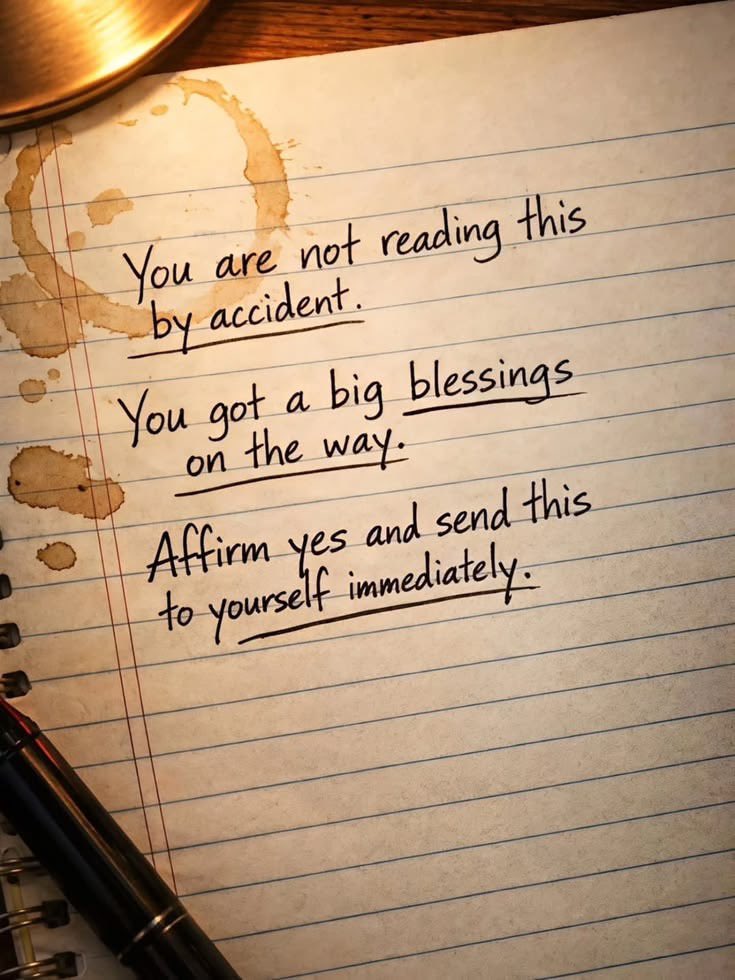 You are not reading this
by accident.
You got a big blessings
on the way.
Affirm yes and send this
to yourself immediately.